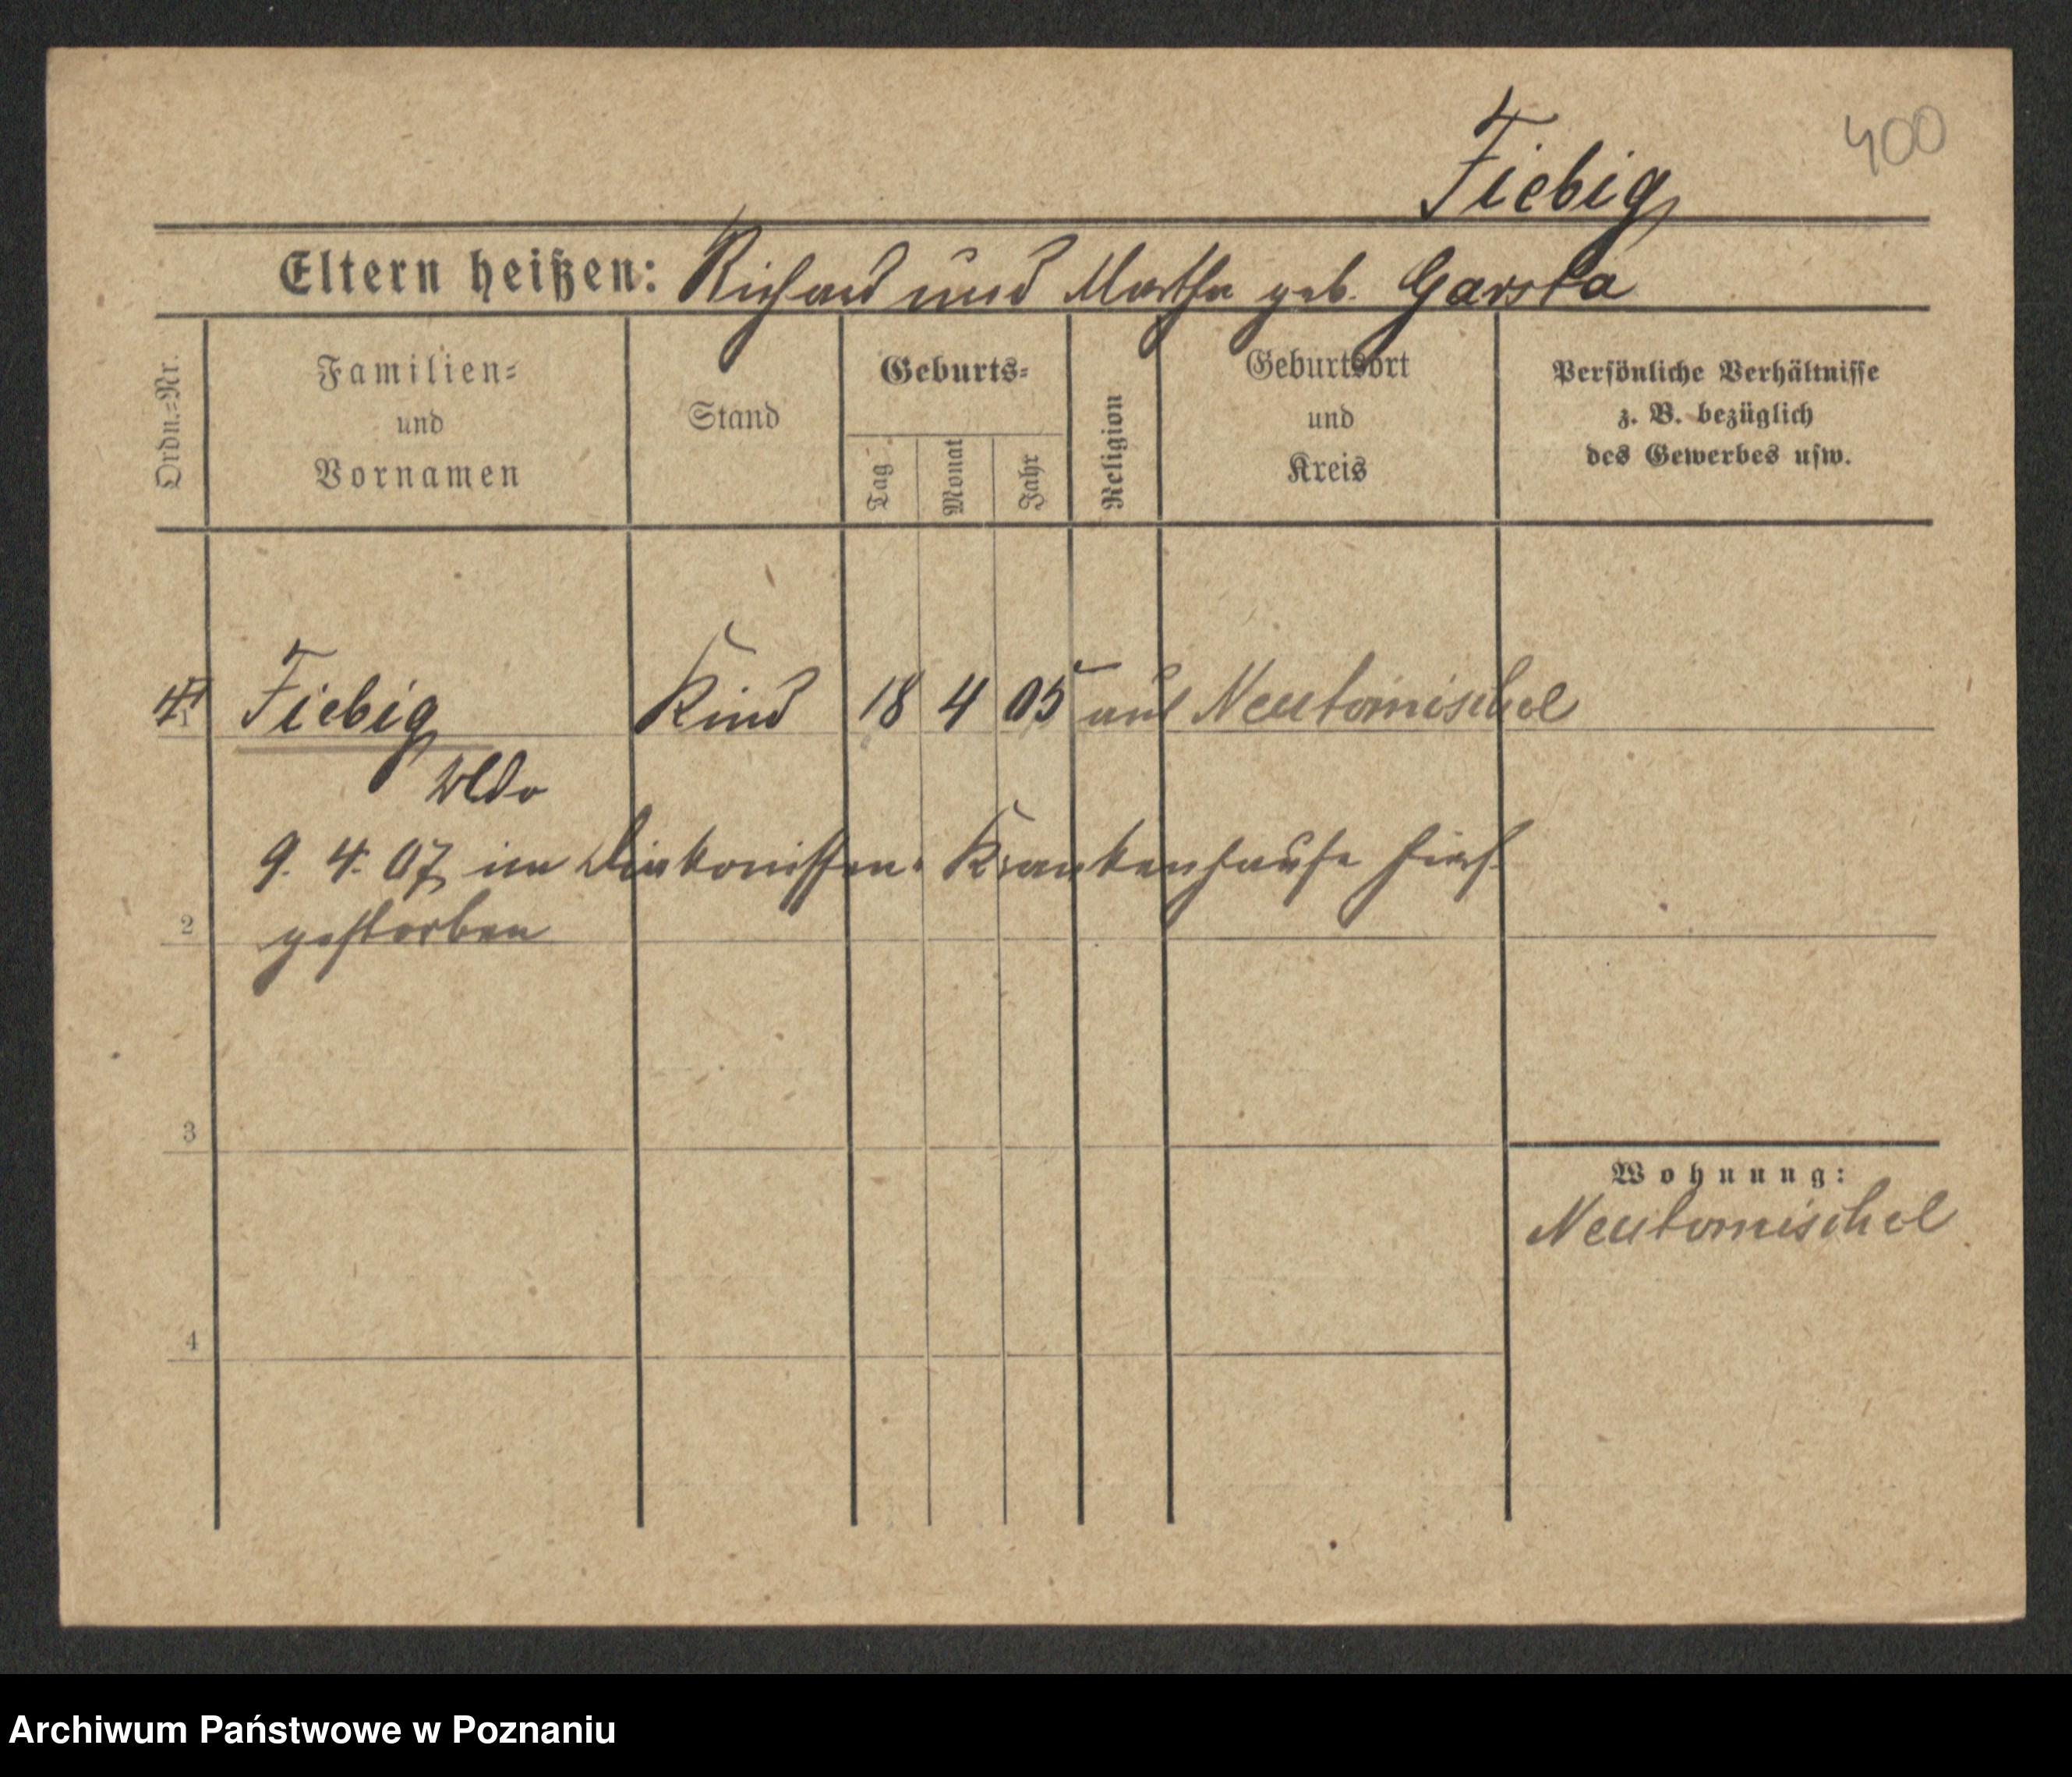 400
Fiebig
Eltern heißen: Richard und Martha geb. Garska
Ordn.=Nr.
Familien=
und
Vornamen
Stand
Geburts=
Tag
Monat
Jahr
Religion
Geburtsort
und
Kreis
Persönliche Verhältnisse
z. B. bezüglich
des Gewerbes usw.
1 Fiebig Kind 18 4 05 Neutomischel
9. 4. 07 im Diakonissen- Krankenhause hies.
2
gestorben
3
Wohnung:
Neutomischel
4
Archiwum Państwowe w Poznaniu